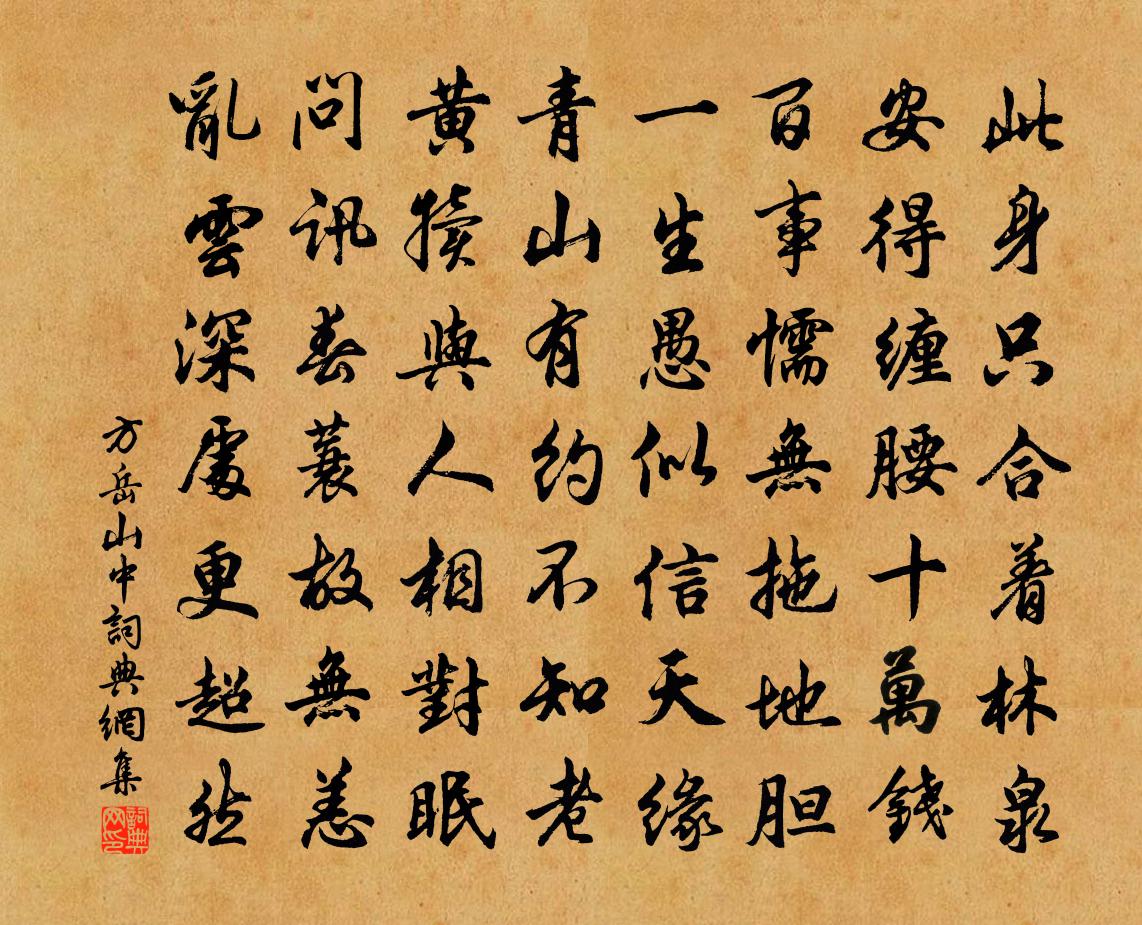 此身只合着林泉
安得缠腰十萬錢
百事懦無拖地胆
一生愚似信天緣
青山有約不知老
黃犢與人相對眠
問訊春蓑故無恙
亂雲深處更超然
方岳山中詞典網集
詞典网印